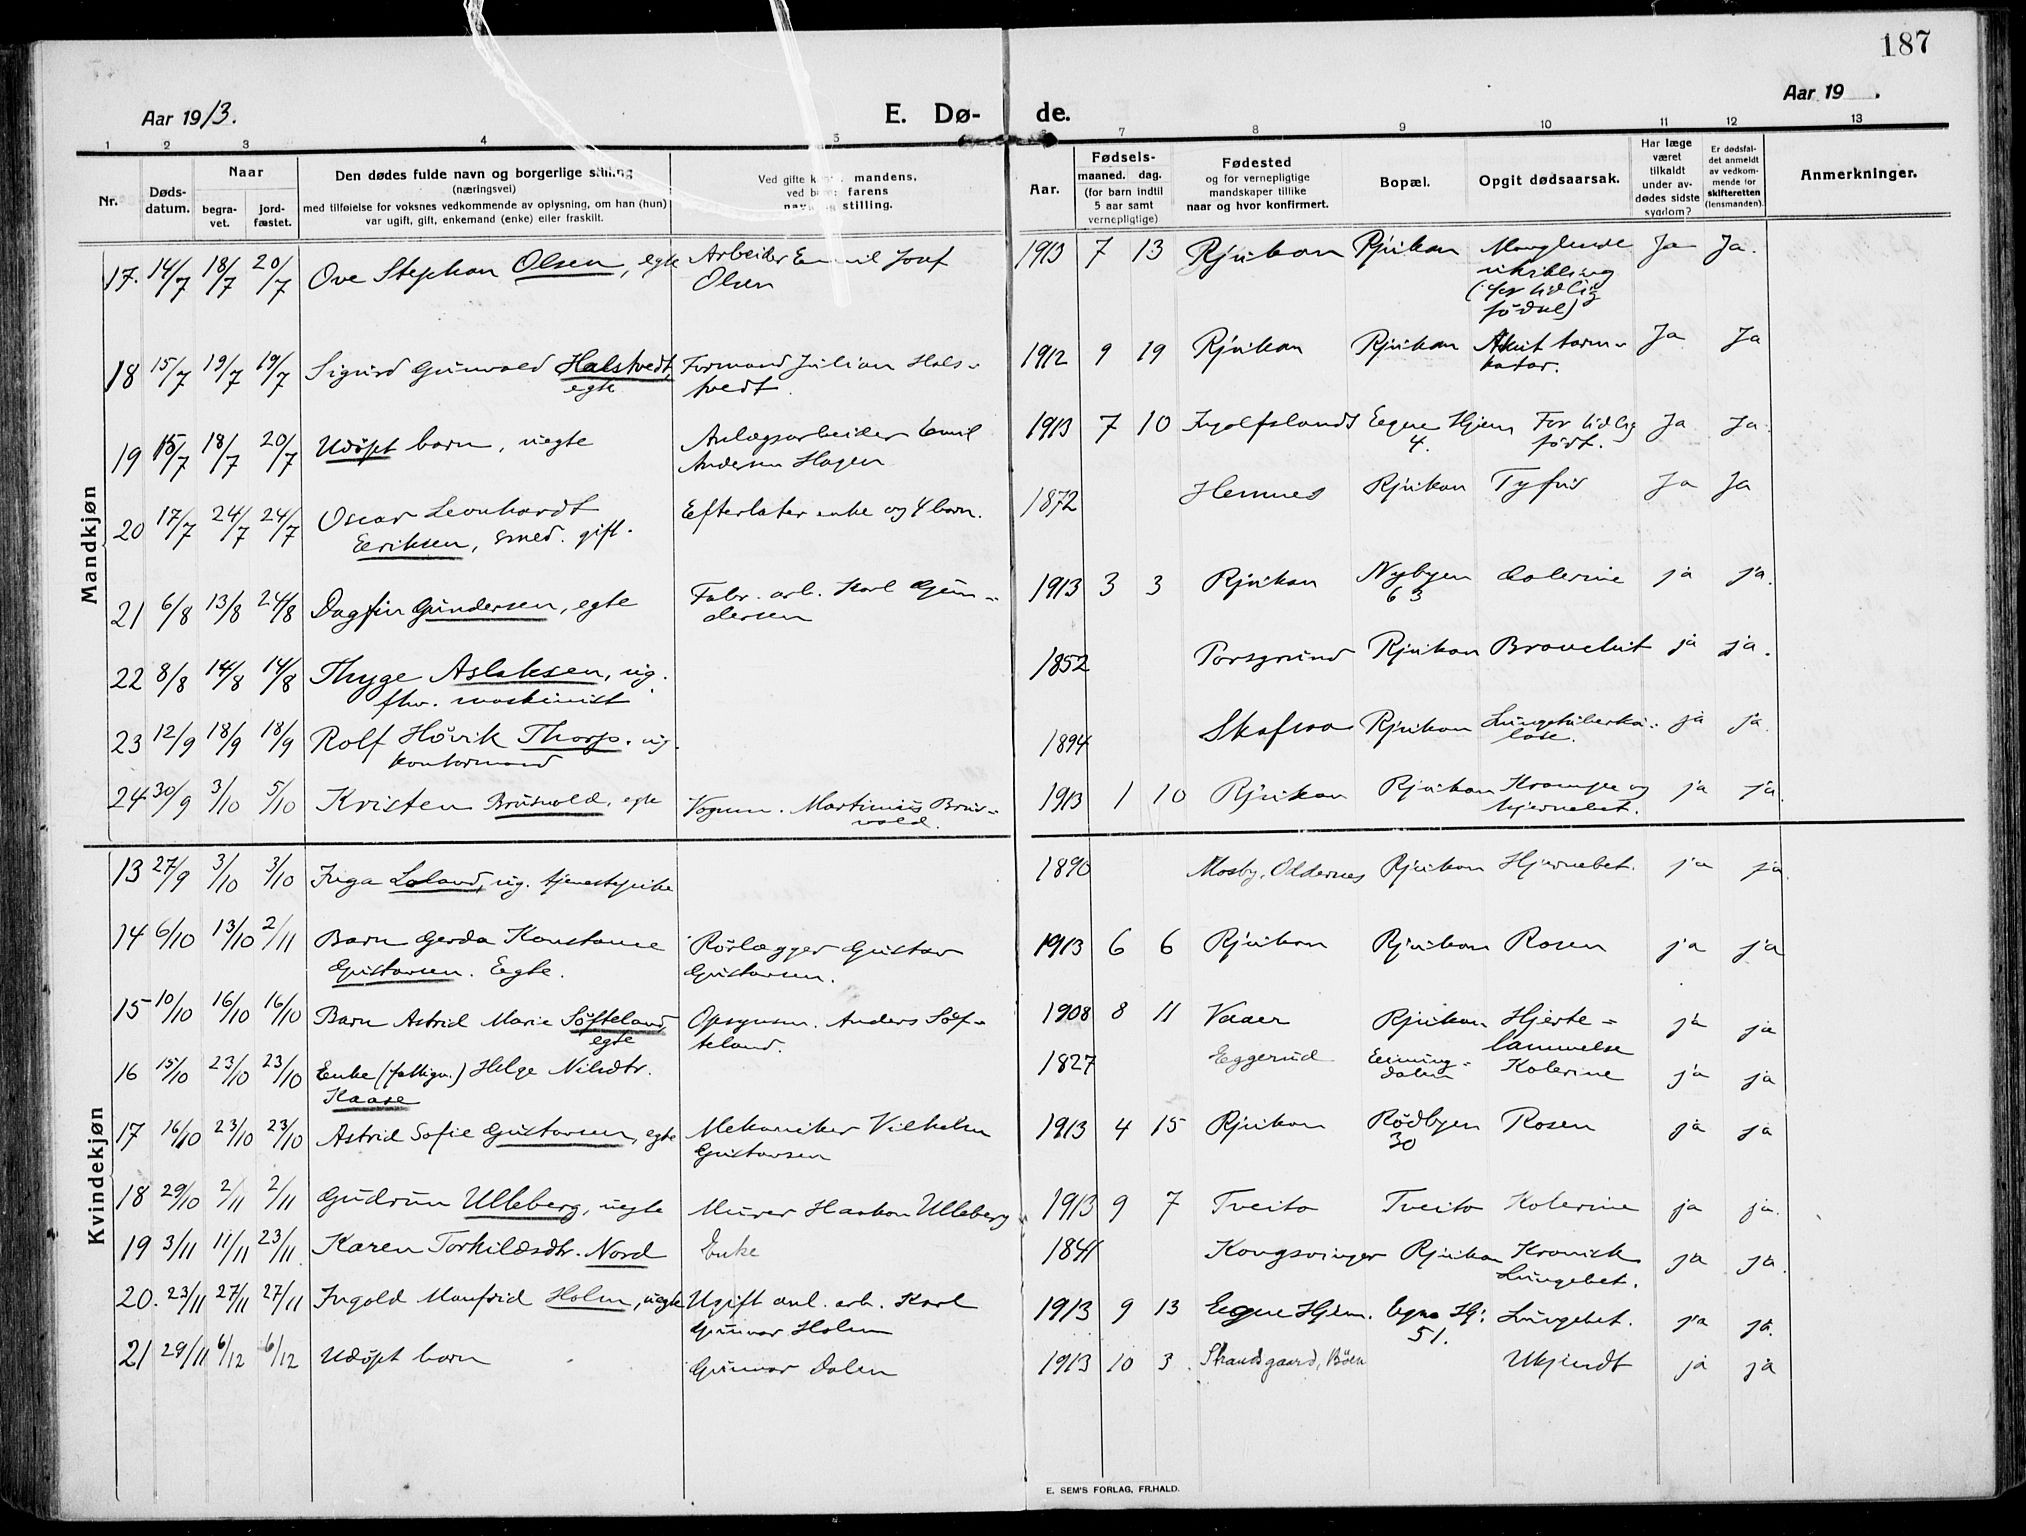 187
Aar 1913.
E. Dø-
de.
Aar 19 .
1 2 3 4 5 6 7 8 9 10 11 12 13
Nr.
Døds-
datum.
Naar
begra-
vet.
jord-
fæstet.
Den dødes fulde navn og borgerlige stilling
(næringsvei)
med tilføielse for voksnes vedkommende av oplysning, om han (hun)
var ugift, gift, enkemand (enke) eller fraskilt.
Ved gifte k mandens,
ved b farens
navn og stilling.
Aar.
Fødsels-
maaned. dag.
(for barn indtil
5 aar samt
vernepligtige)
Fødested
og for vernepligtige
mandskaper tillike
naar og hvor konfirmert.
Bopæl.
Opgit dødsaarsak.
Har læge
været
tilkaldt
under av-
dødes sidste
sygdom?
Er dødsfal-
det anmeldt
av vedkom-
mende for
skifteretten
(lensmanden).
Anmerkninger.
Mandkjøn
17. 14/7 18/7 20/7 Ove Stephan Olsen, egte Arbeider Emil Josef 1913 7 13 Rjukan Rjukan Manglende Ja Ja.
Olsen utvikling
(for tidlig
födsel)
18 15/7 19/7 19/7 Sigurd Gunvald Halstvedt, Formand Julian Hals- 1912 9 19 Rjukan Rjukan Akut tarm- Ja Ja
egte tvedt. katar.
19 15/7 18/7 20/7 Udøpt barn, uegte Anlægsarbeider Emil 1913 7 10 Ingolfslands Eegne Hjem For tidlig Ja Ja.
Andersen Hagen 4. födt.
20 17/7 24/7 24/7 Oscar Leonhardt Efterlater enke og 4 barn. 1872 Hemnes Rjukan Tyfus Ja Ja
Eeriksen, smed. gift.
21 6/8 13/8 24/8 Dagfin Gundersen, egte Fabr. arb. Karl Gun- 1913 3 3 Rjukan Nybyen Colerine ja ja.
dersen 63
22 8/8 14/8 14/8 Thyge Aslaksen, ug. 1852 Porsgrund Rjukan ja ja.
fhv. maskinist
23 12/9 18/9 18/9 Rolf Hövik Thorp. ug. 1894 Skafsaa Rjukan Lungetuberku- ja ja.
kontormand lose.
24 30/9 3/10 5/10 Kristen Brusvold, egte Vognm. Martinius Brus- 1913 1 10 Rjukan Rjukan Krampe og ja ja.
vold. hjernebet.
Kvindekjøn
13 27/9 3/10 3/10 Inga Loland, ug. tjenestepike 1890 Mosby, Oddernes Rjukan Hjernebet. ja ja.
14 6/10 13/10 2/11 Barn Gerda Konstance Rörlægger Gustav 1913 6 6 Rjukan Rjukan Rosen ja ja
Gustavsen. Eegte. Gustavsen.
15 10/10 16/10 16/10 Barn Astrid Marie Söfteland, Opsynsm. Anders Söf- 1908 8 11 Vaaer Rjukan Hjerte- ja ja
egte teland. lammelse
16 15/10 23/10 23/10 Enke (fattigu.) Helge Nilsdtr. 1827 Eggerud Kolerine ja ja
Kaase dalen
17 16/10 23/10 23/10 Astrid Sofie Gustavsen, egte Mekaniker Vilhelm 1913 4 15 Rjukan Rödbyen Rosen ja ja
Gustavsen 30
18 29/10 2/11 2/11 Gudrun Ulleberg, uegte Murer Haakon Ulleberg 1913 9 7 Tveito Tveito Kolerine ja ja.
19 3/11 11/11 23/11 Karen Torkildsdtr. Nord Enke 1841 Kongsvinger Rjukan Kronisk ja ja.
Lungebet.
20. 23/11 27/11 27/11 Ingold Manfrid Holm, uegte Ugift anl. arb. Karl 1913 9 13 Eegne Hjem. Egne Hj: Lungebet. ja ja.
Gunnar Holm 51.
21 29/11 6/12 6/12 Udöpt barn Gunnar Dalen 1913 10 3 Strandsgaard, Böen Ukjendt ja ja
E. SEM'S FORLAG, FR.HALD.